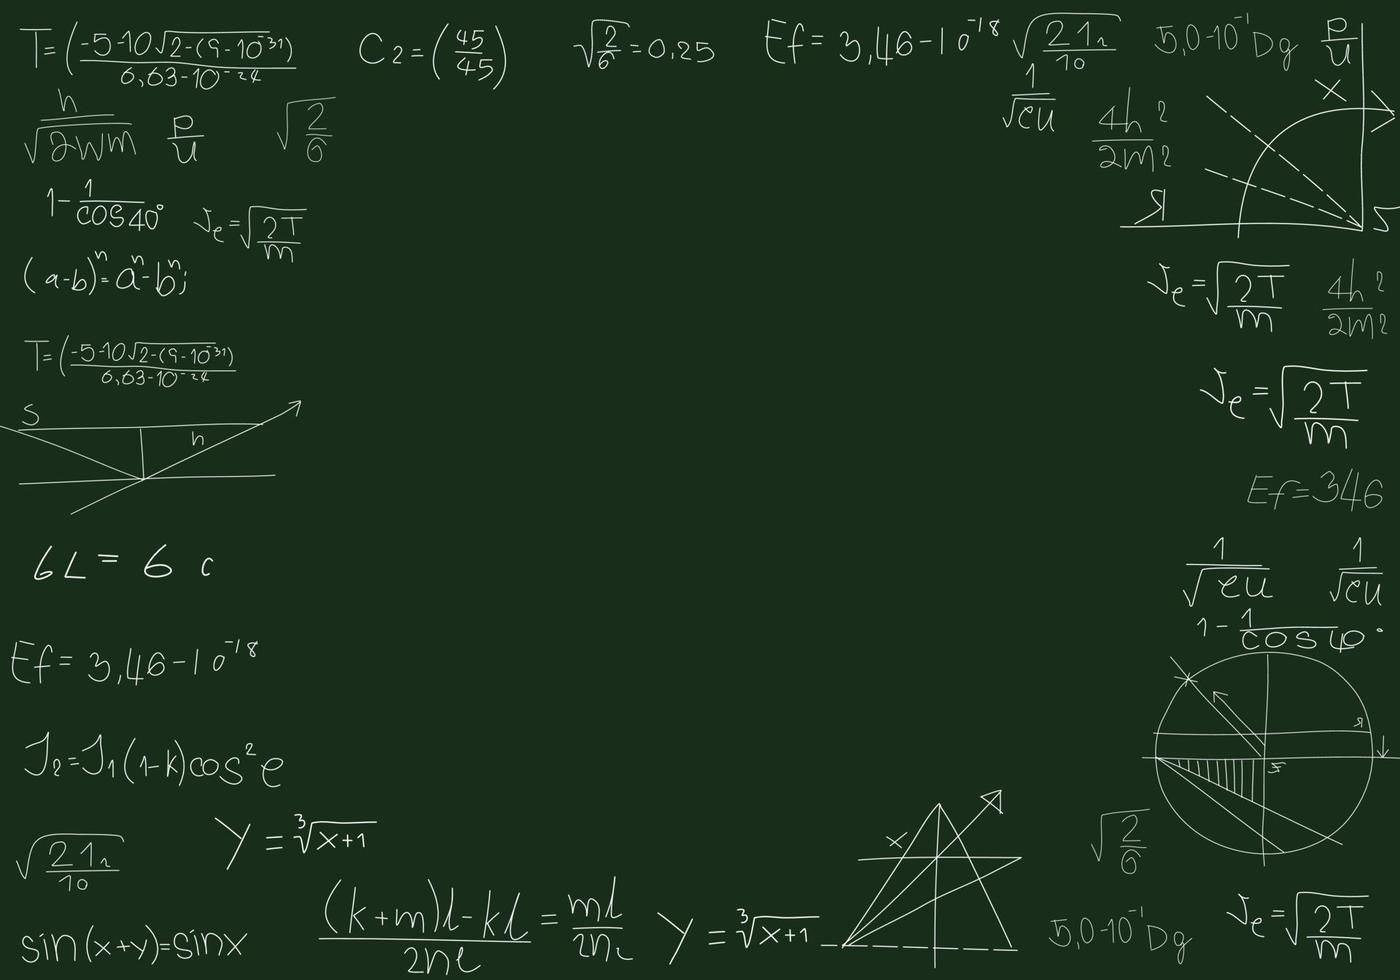 T=(-5-10√2-(9-10⁻³¹)/6,63-10⁻²⁴
C₂=(45/45)
√2/6=0,25
Ef=3,46-10⁻¹⁸
√21₂/10
5,0·10⁻¹Dg
p/u
h/√2wm
p/u
√2/6
1/√eu
4h²/2m²
x
1-1/cos40°
Je=√2T/m
Я
S
(a-b)ⁿ=aⁿ-bⁿ;
Je=√2T/m
4h²/2m²
T=(-5-10√2-(9-10⁻³¹)/6,63-10⁻²⁴
Je=√2T/m
S
h
Ef=346
6L=6 c
1/√eu
1/√eu
1-1/cos40°
Ef=3,46-10⁻¹⁸
Я
J₂=J₁(1-k)cos²e
Y=³√x+1
x
√2/6
√21₂/10
(k+m)l-kl/2ne=ml/2n₂
Y=³√x+1
5,0·10⁻¹Dg
Je=√2T/m
sin(x+y)=sinx